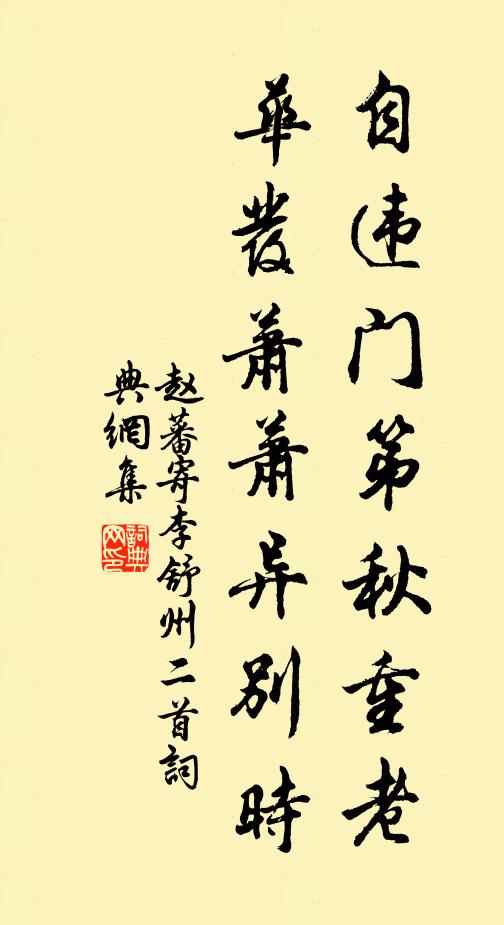 自违门第秋重老
華发蕭蕭异别時
赵蕃寄李舒州二首詞
典網集
詞典网印